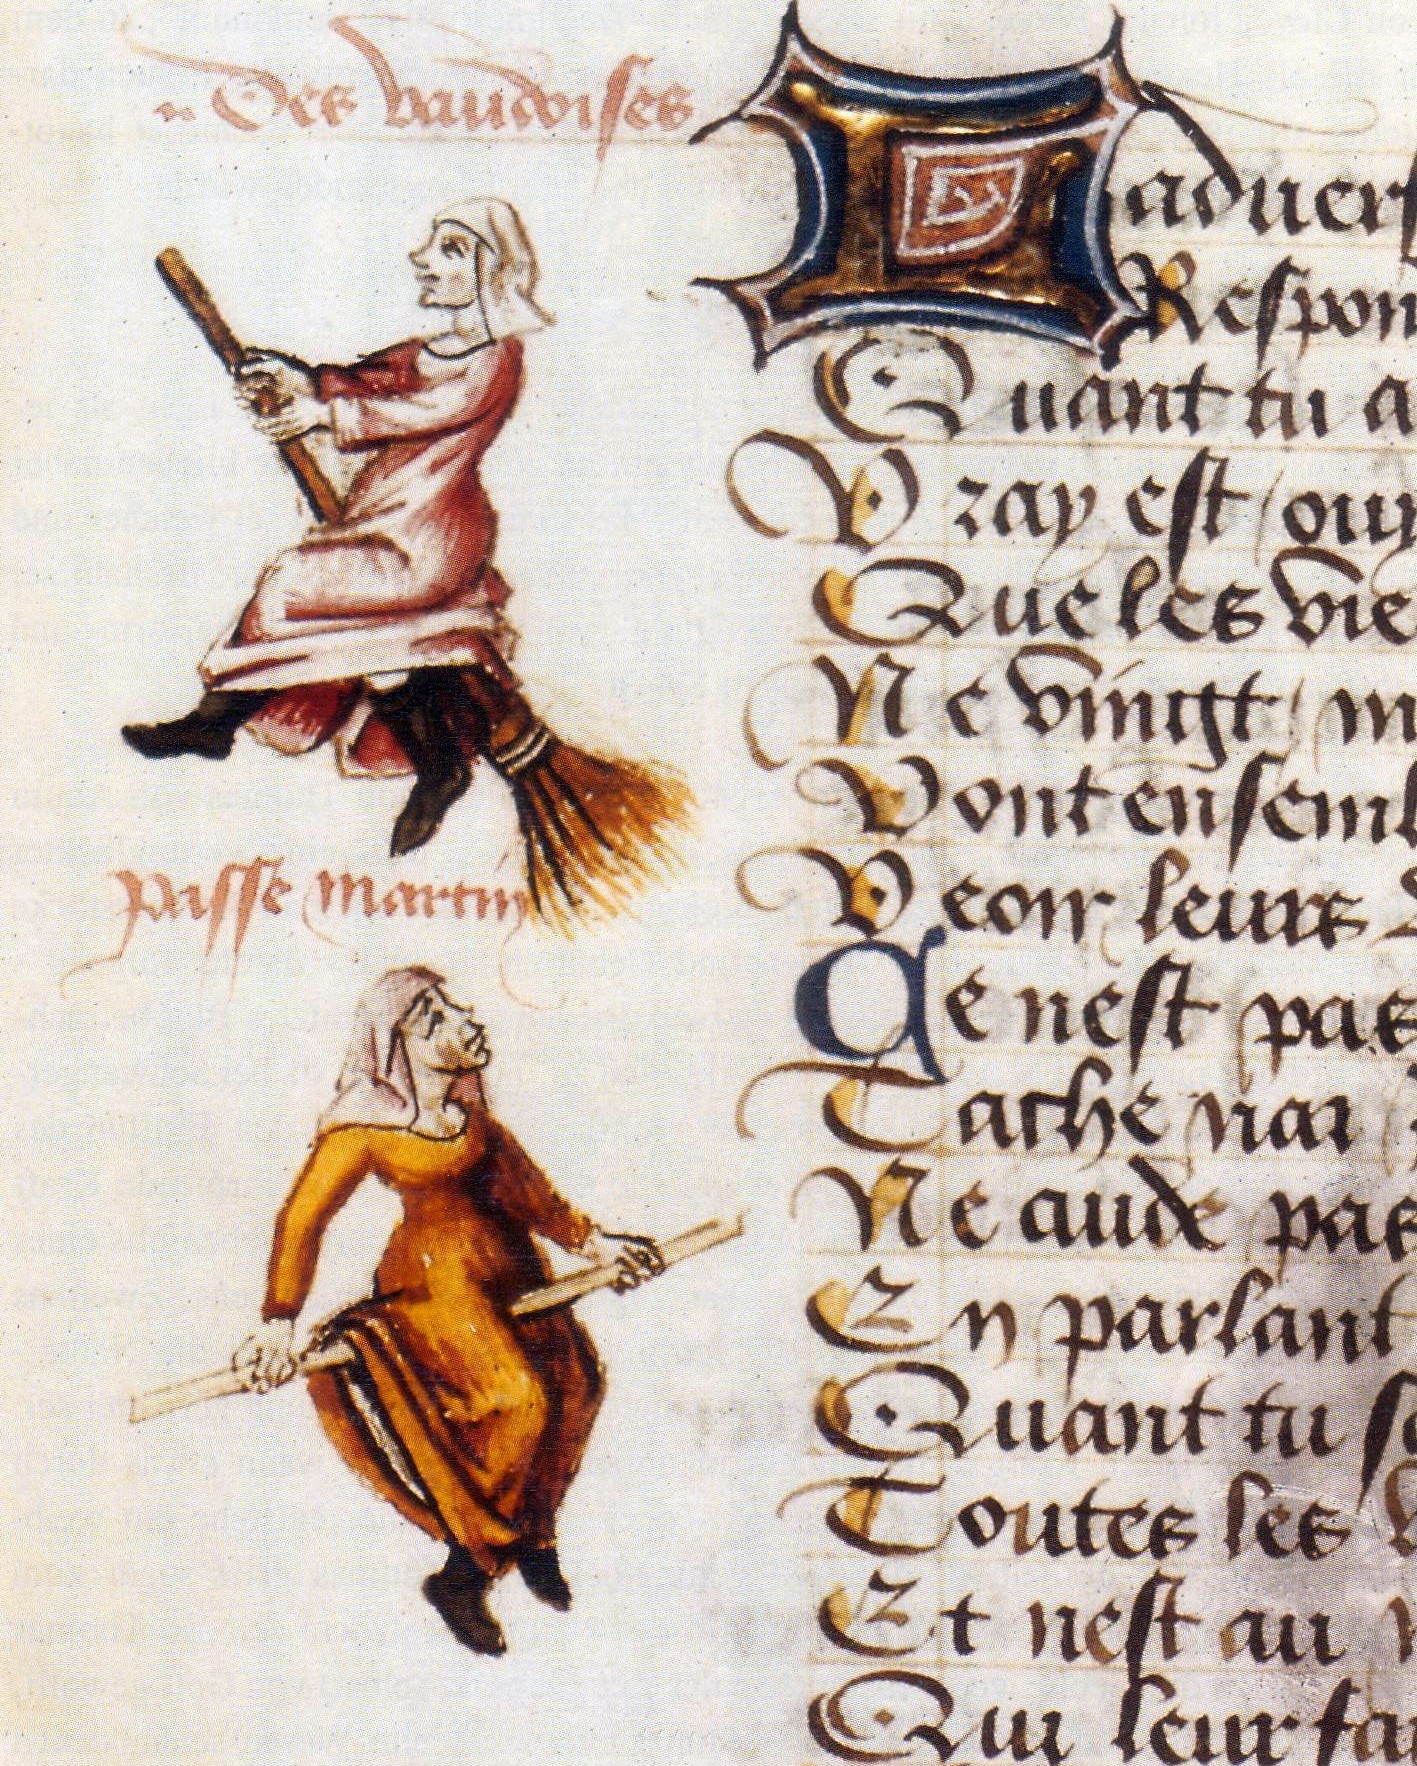 Des vaudoises
Ladvers
Respon
Quant tu a
Vray est ouy
Que les vie
Ne vingt m
Vont ensembl
Veoir leurs
passe martin
Ce nest pas
Tache
Ne aude pas
En parlant
Quant tu sc
Toutes les v
Et nest au
Qui leur fa